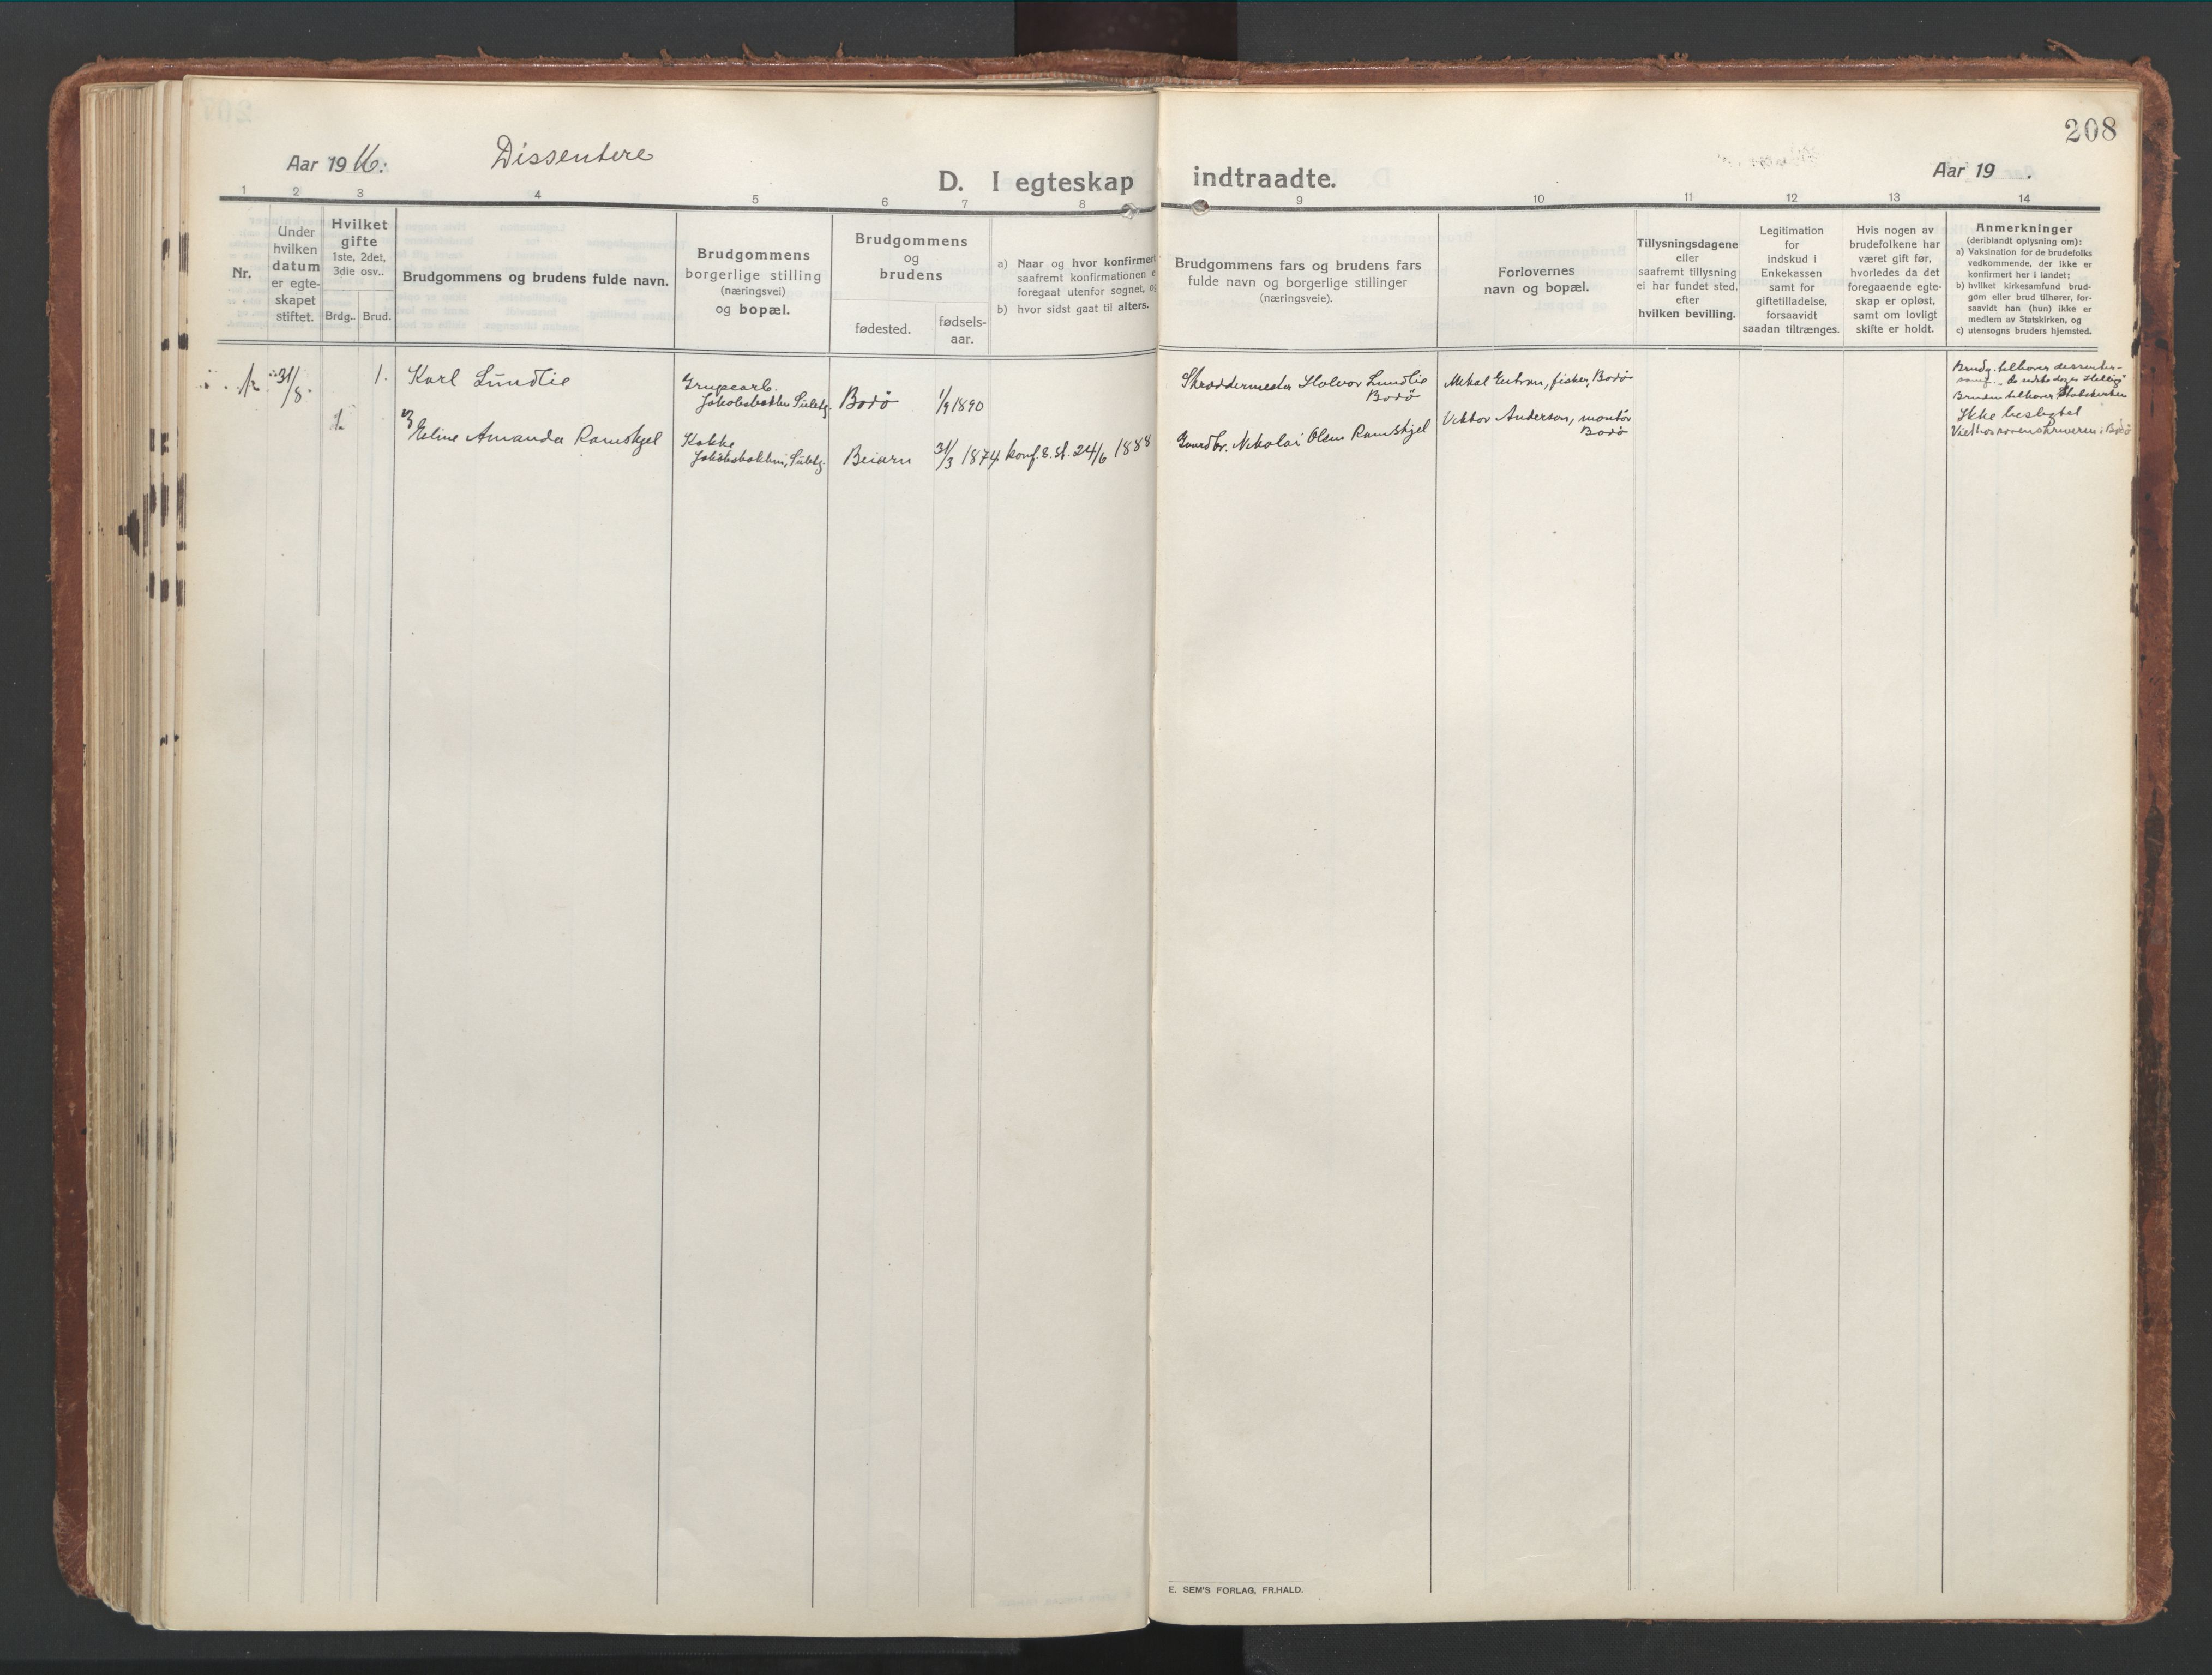 208
Aar 1916:
Dissentere
D. I egteskap indtraadte.
Aar 19 .
1 2 3 4 5 6 7 8 9 10 11 12 13 14
Nr.
Under
hvilken
datum
er egte-
skapet
stiftet.
Hvilket
gifte
1ste, 2det,
3die osv..
Brdg..
Brud.
Brudgommens og brudens fulde navn.
Brudgommens
borgerlige stilling
(næringsvei)
og bopæl.
Brudgommens
og
brudens
fødested.
fødsels-
aar.
a) Naar og hvor konfirmert
saafremt konfirmationen e
foregaat utenfor sognet, og
b) hvor sidst gaat til alters.
Brudgommens fars og brudens fars
fulde navn og borgerlige stillinger
(næringsveie).
Forlovernes
navn og bopæl.
Tillysningsdagene
eller
saafremt tillysning
ei har fundet sted,
efter
hvilken bevilling.
Legitimation
for
indskud i
Enkekassen
samt for
giftetilladelse,
forsaavidt
saadan tiltrænges.
Hvis nogen av
brudefolkene har
været gift før,
hvorledes da det
foregaaende egte-
skap er opløst,
samt om lovligt
skifte er holdt.
Anmerkninger
(deriblandt oplysning om):
a) Vaksination for de brudefolks
vedkommende, der ikke er
konfirmert her i landet;
b) hvilket kirkesamfund brud-
gom eller brud tilhører, for-
saavidt han (hun) ikke er
medlem av Statskirken, og
c) utensogns bruders hjemsted.
31/8.
1.
Karl Lundlie
Grupearb.
Jakobsbakken Sulitj.
Bodø
1/9 1890
Skræddermester Halvor Lundlie
Bodø
fisker, Bodø
Brudg. tilhører dissenter-
samf. "de sidste dages Hellige"
Bruden tilhører Statskirken
Ikke beslegtet
Viet hos sorenskriveren i Bodø
Eline Amanda Ramskjel
Kokke
Jakobsbakken, Sulitj.
Beiarn
31/3 1874
konf. S. st. 24/6 1888
Gaardbr. Nikolai Olsen Ramskjel
Viktor Anderson, montør
Bodø
E. SEM'S FORLAG, FR.HALD.